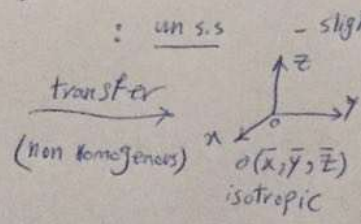 : un s.s - sligh
transfer
(non homogenous)
z
y
x
o
o(x̄, ȳ, z̄)
isotropic